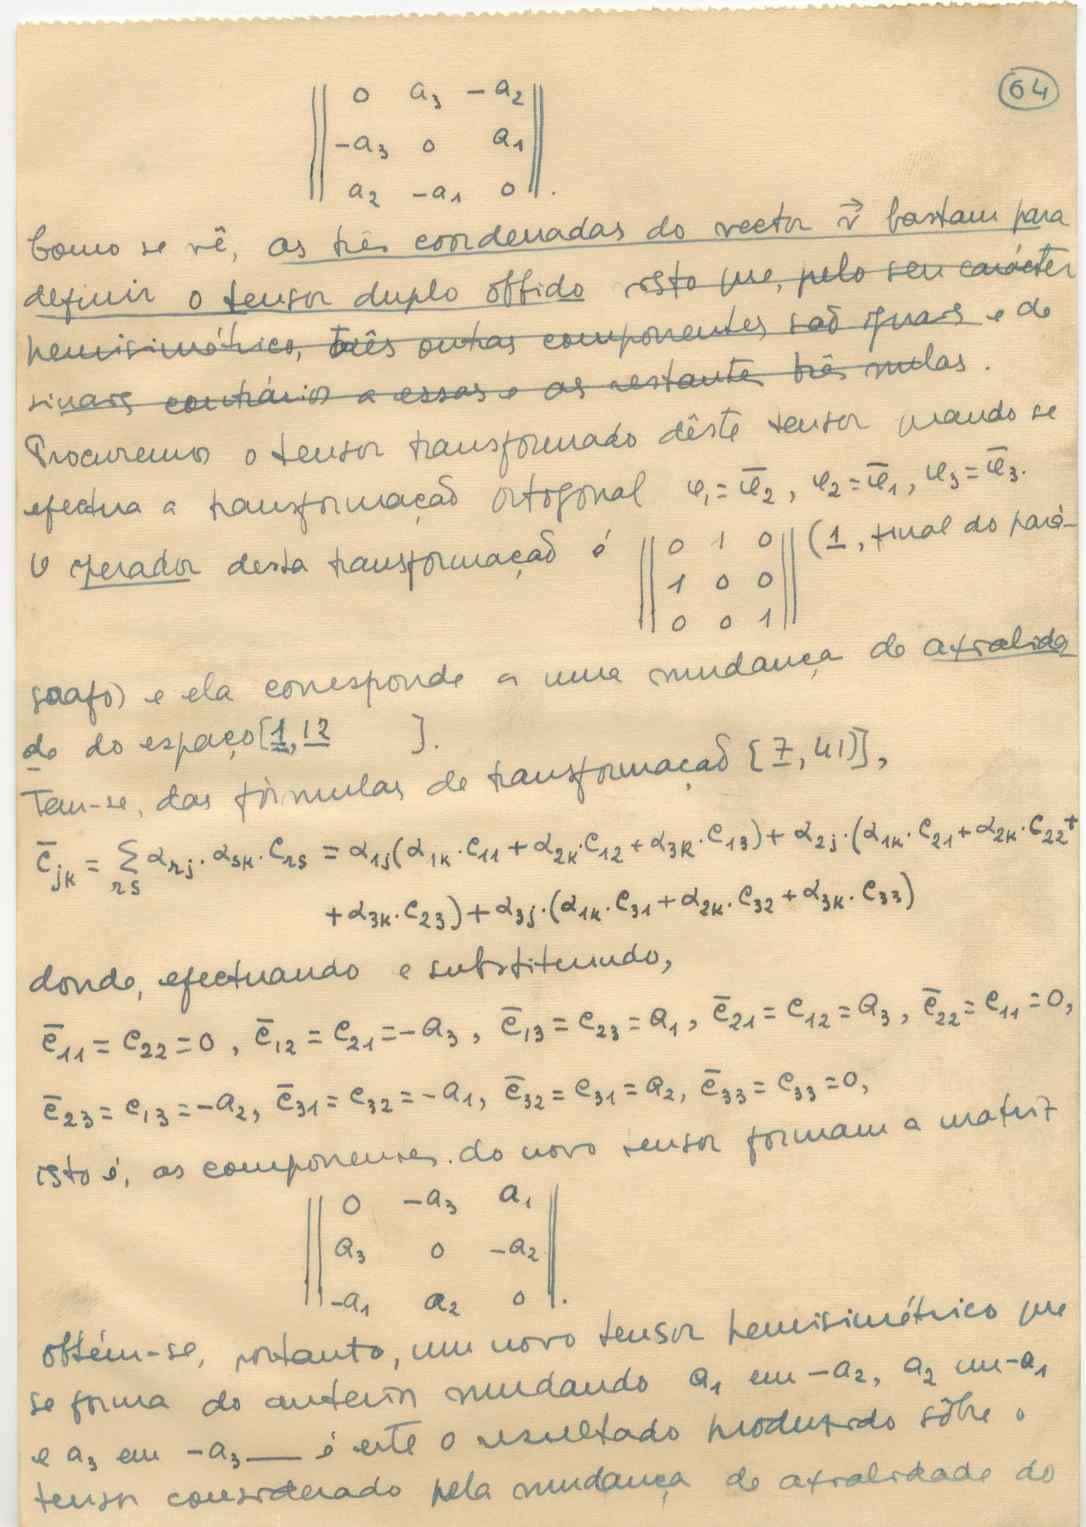 64
|| 0 a₃ -a₂ ||
|| -a₃ 0 a₁ ||
|| a₂ -a₁ 0 ||.
Como se vê, as três coordenadas do vector v⃗ bastam para
definir o tensor duplo obtido visto que, pelo seu carácter
hemisimétrico, três outras componentes são iguais e de
sinais contrários a essas e as restantes três nulas.
Procuremos o tensor transformado dêste tensor quando se
efectua a transformação ortogonal φ₁=φ̄₂, φ₂=φ̄₁, φ₃=φ̄₃.
O operador desta transformação é || 0 1 0 || (1, final do pará-
|| 1 0 0 ||
|| 0 0 1 ||
grafo) e ela corresponde a uma mudança de axialida
de do espaço [1,12 ].
Tem-se, das fórmulas de transformação [7, 41)],
c̄jk = Σrs αrj.αsk.crs = α1j(α1k.c11 + α2k.c12 + α3k.c13) + α2j.(α1k.c21 + α2k.c22 +
+ α3k.c23) + α3j.(α1k.c31 + α2k.c32 + α3k.c33)
donde, efectuando e substituindo,
c̄11 = c22 = 0, c̄12 = c21 = -a₃, c̄13 = c23 = a₁, c̄21 = c12 = a₃, c̄22 = c11 = 0,
c̄23 = c13 = -a₂, c̄31 = c32 = -a₁, c̄32 = c31 = a₂, c̄33 = c33 = 0,
isto é, as componentes do novo tensor formam a matriz
|| 0 -a₃ a₁ ||
|| a₃ 0 -a₂ ||
|| -a₁ a₂ 0 ||.
obtém-se, portanto, um novo tensor hemisimétrico que
se forma do anterior mudando a₁ em -a₂, a₂ em -a₁
e a₃ em -a₃ — é este o resultado produzido sôbre o
tensor considerado pela mudança de axialidade do